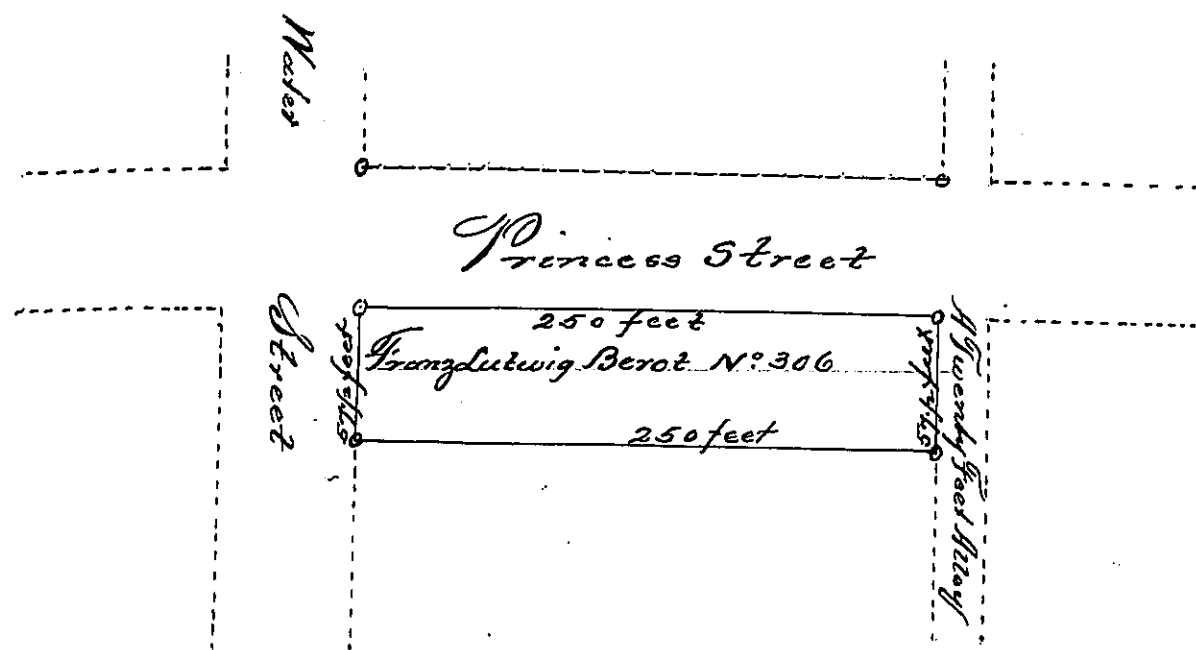 Water
Street
Princess Street
250 feet
Franz Lutwig Berot No. 306
57 1/2 feet
57 1/2 feet
250 feet
A Twenty Feet Alley